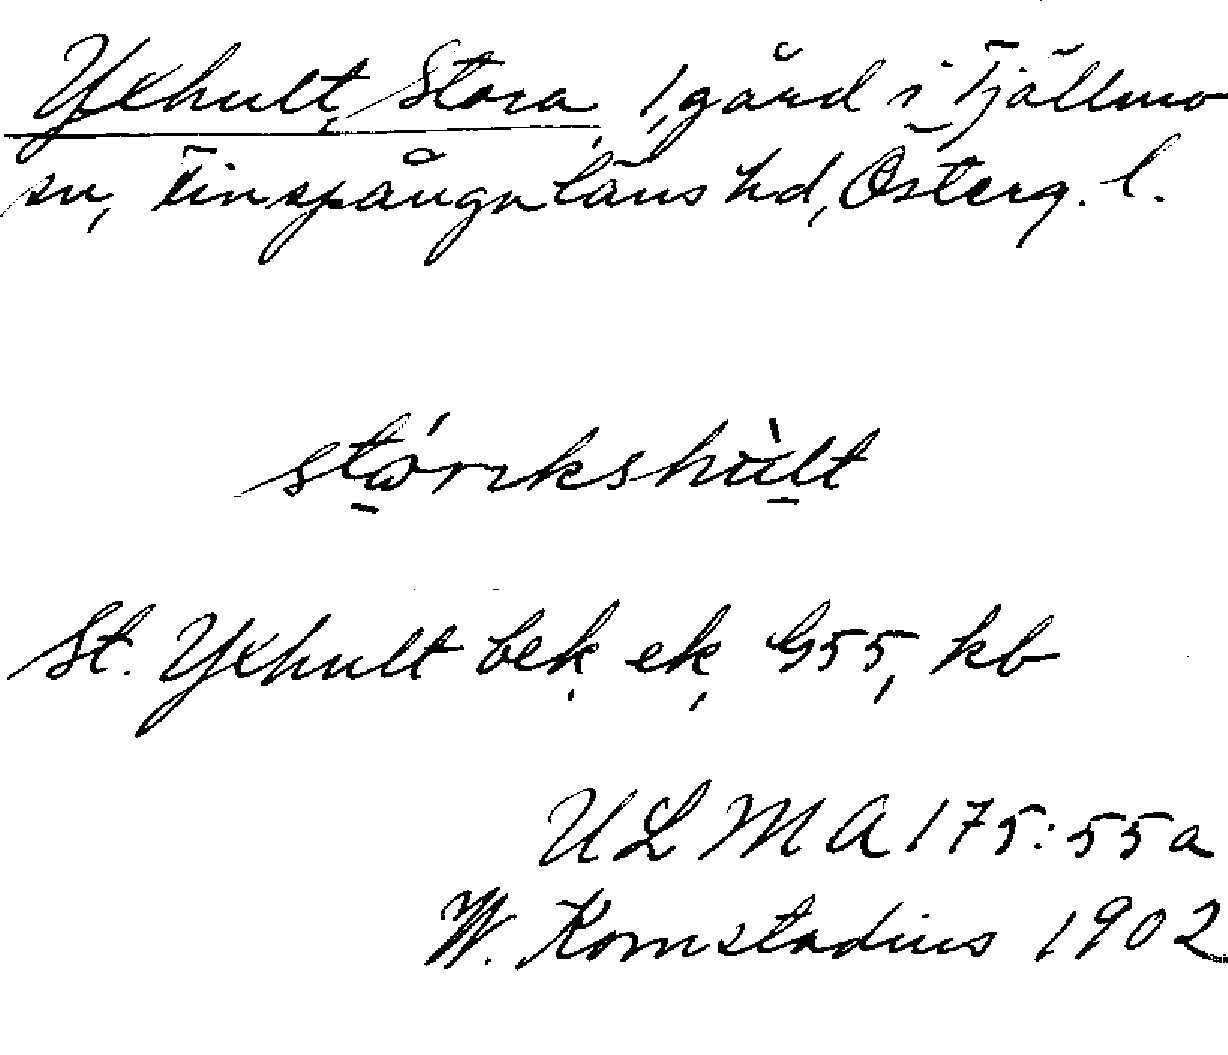 Yxhult, Stora, 1, gård i Tjällmo
sn, Finspånga läns hd, Österg. l.
stórıkshùlt
St. Yxhult bek. ek, G55, kb
ULMA 175:55a
W. Komstadius 1902